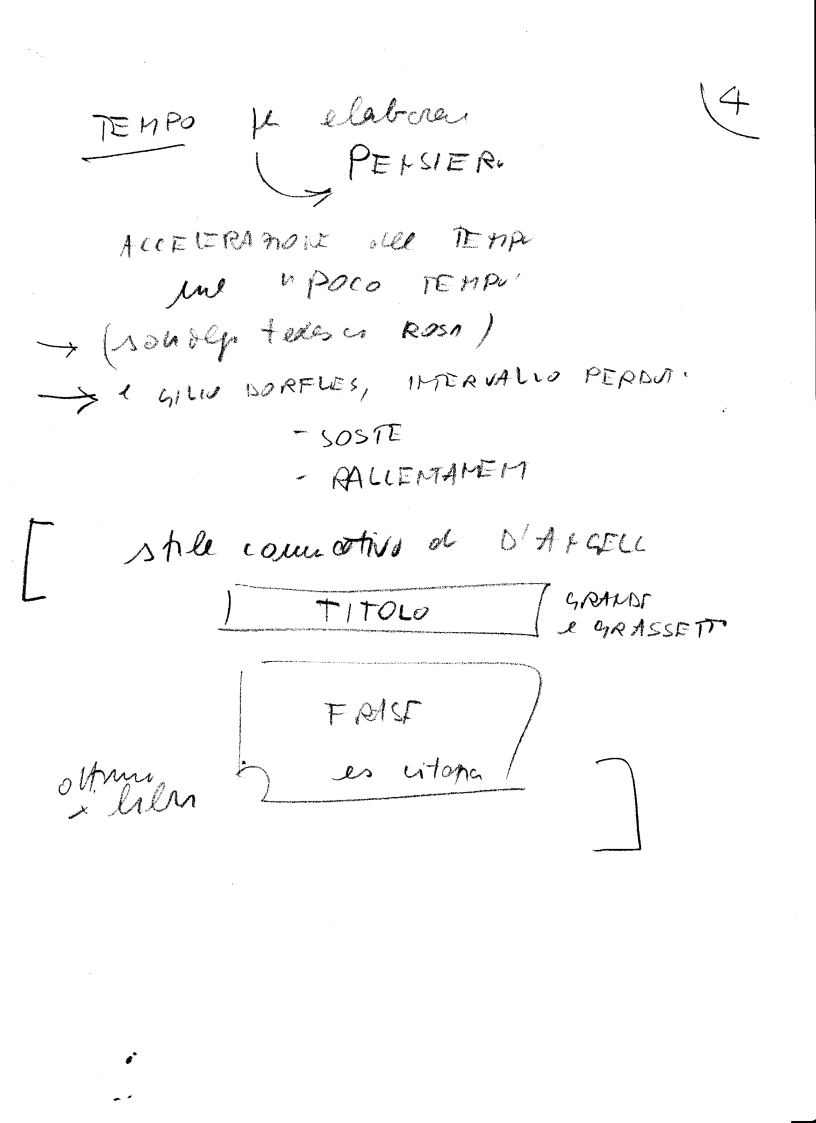 4
TEMPO per elaborare
PENSIERI
ACCELERAZIONE del TEMPO
nel "POCO TEMPO"
→ (sociologo tedesco ROSA)
→ e GILLO DORFLES, INTERVALLO PERDUTO
- SOSTE
- RALLENTAMENTI
[ stile comunicativo di D'ANGELO
TITOLO GRANDE
e GRASSETTO
FRASE
es citando
ottimo
x libri ]